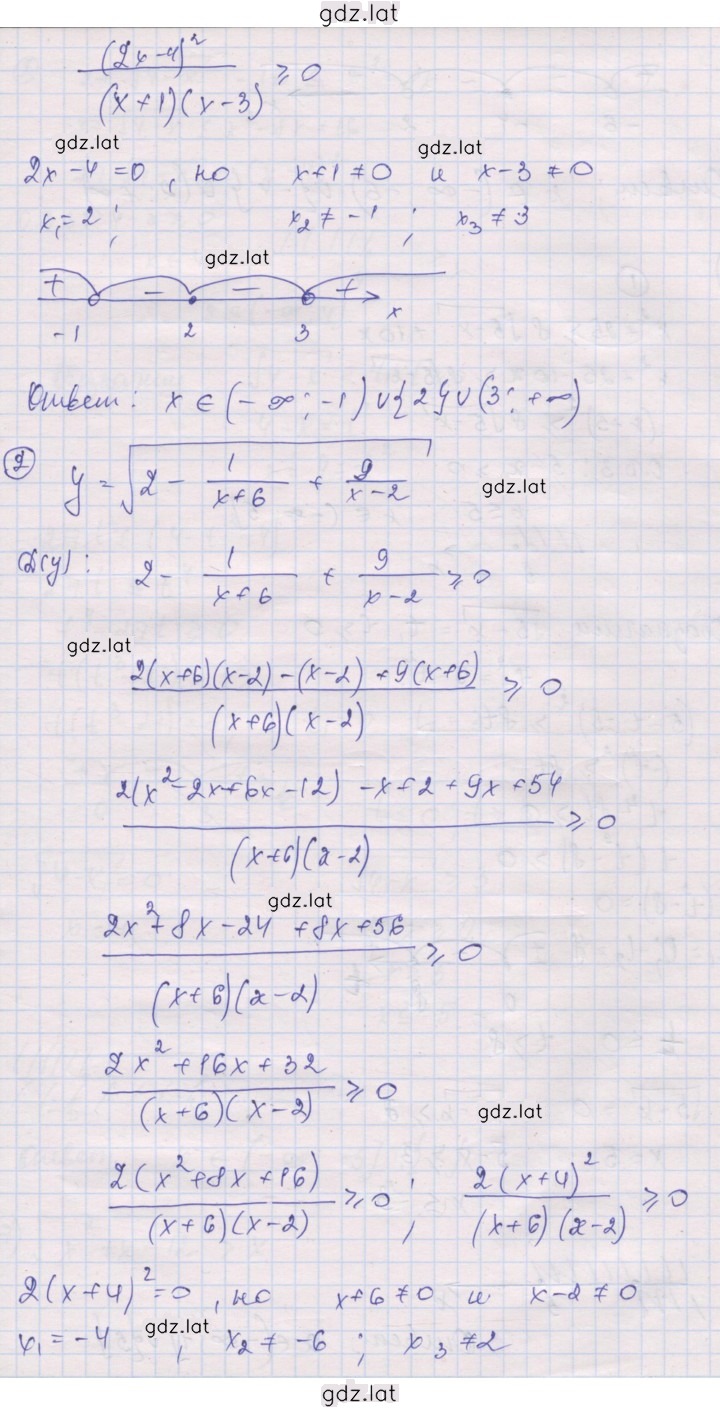 gdz.lat
(2x-4)²
/ (x+1)(x-3) ≥ 0
gdz.lat
gdz.lat
2x-4=0, но x+1≠0 и x-3≠0
x₁=2; x₂≠-1; x₃≠3
gdz.lat
+ - - + x
-1 2 3
Ответ: x ∈ (-∞; -1) ∪ {2} ∪ (3; +∞)
② y = √(2 - 1/(x+6) + 9/(x-2))
gdz.lat
D(y): 2 - 1/(x+6) + 9/(x-2) ≥ 0
gdz.lat
(2(x+6)(x-2) - (x-2) + 9(x+6)) / ((x+6)(x-2)) ≥ 0
(2(x²-2x+6x-12) -x+2+9x+54) / ((x+6)(x-2)) ≥ 0
gdz.lat
(2x²+8x-24+8x+56) / ((x+6)(x-2)) ≥ 0
(2x²+16x+32) / ((x+6)(x-2)) ≥ 0
gdz.lat
2(x²+8x+16) / ((x+6)(x-2)) ≥ 0; 2(x+4)² / ((x+6)(x-2)) ≥ 0
2(x+4)²=0, но x+6≠0 и x-2≠0
gdz.lat
x₁=-4, x₂≠-6; x₃≠2
gdz.lat